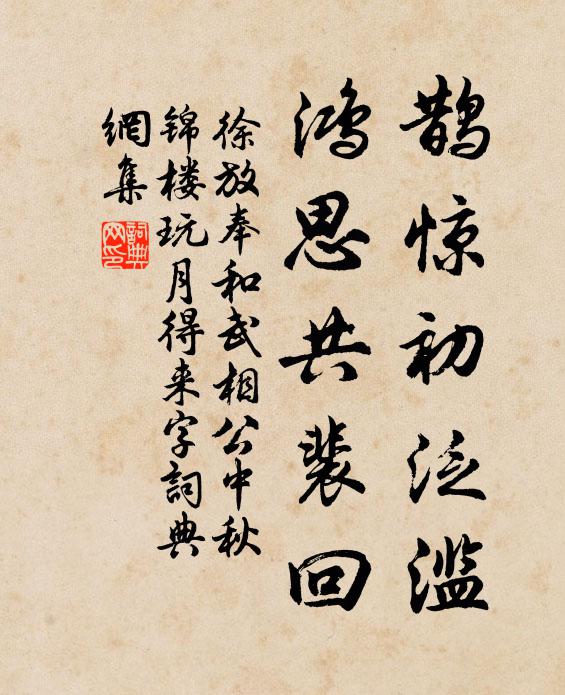 鹊惊初泛滥
鸿思共裴回
徐放奉和武相公中秋
锦楼玩月得来字詞典
網集
詞典
网印